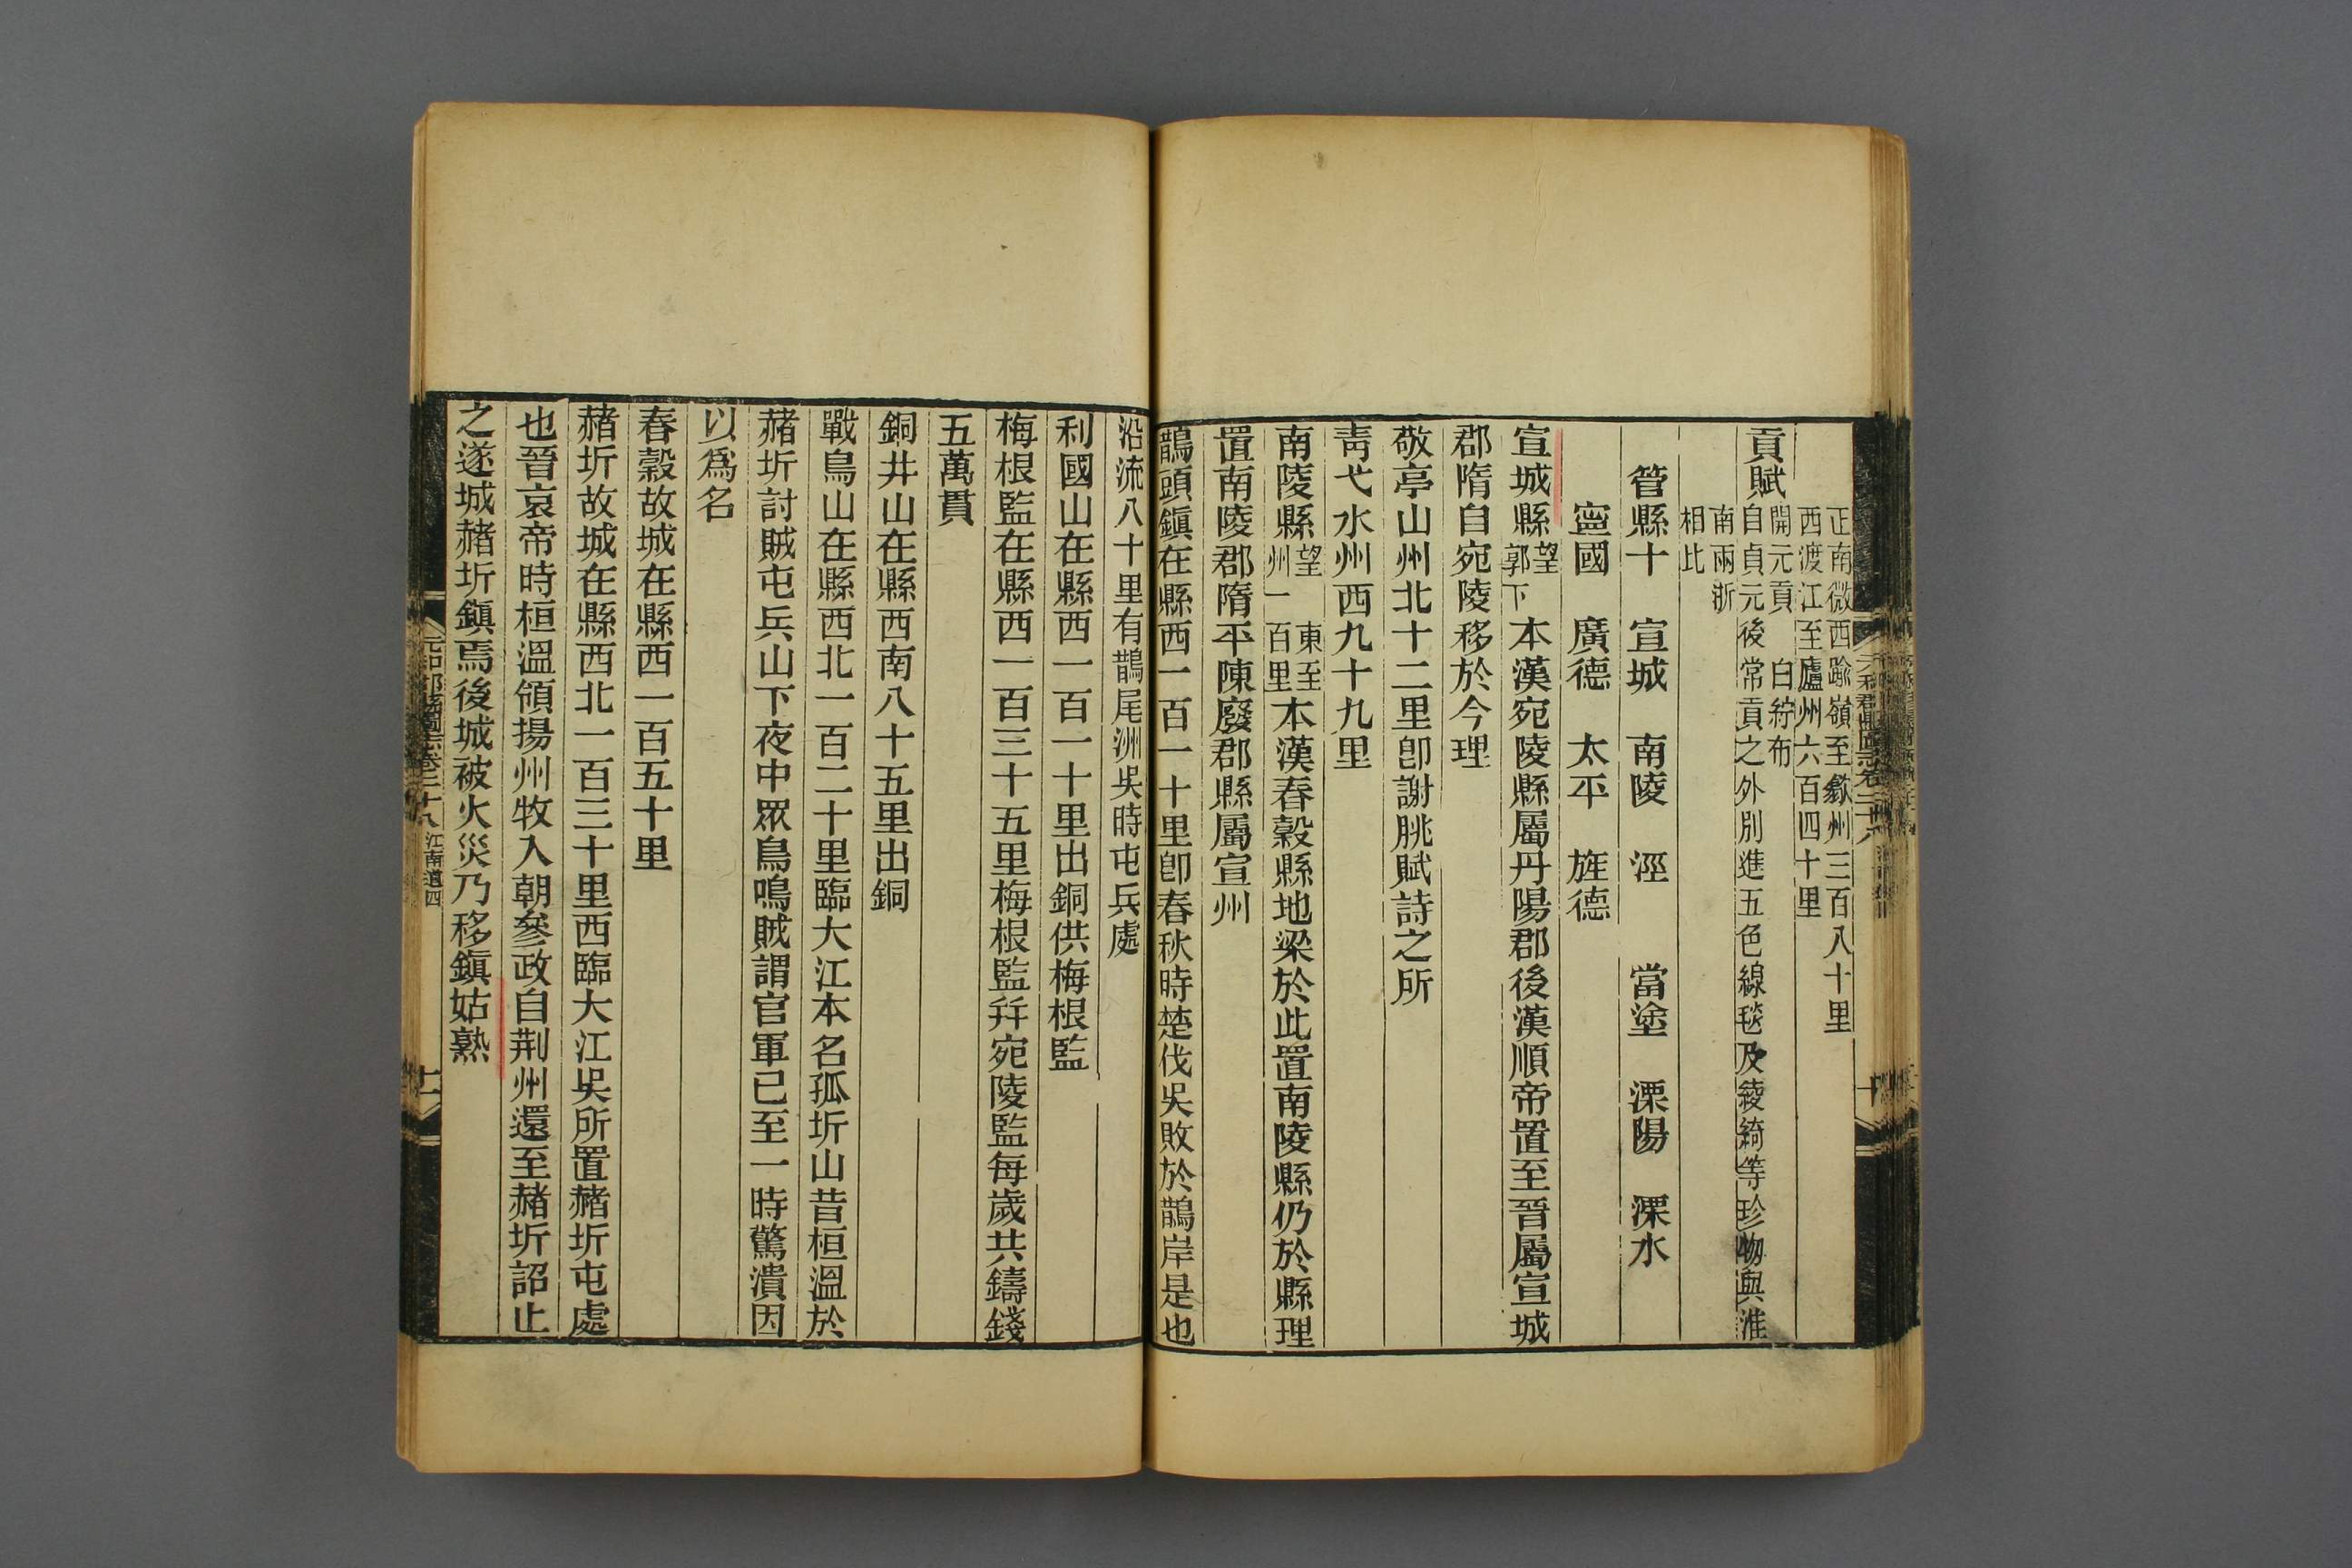 正南微西踰嶺至歙州三百八十里
西渡江至廬州六百四十里
貢賦
開元貢　白紵布
自貞元後常貢之外別進五色線毯及綾綺等珍物與淮
南兩浙
相比
管縣十　宣城　南陵　涇　當塗　溧陽　溧水
寧國　廣德　太平　旌德
宣城縣望郭下本漢宛陵縣屬丹陽郡後漢順帝置至晉屬宣城
郡隋自宛陵移於今理
敬亭山州北十二里卽謝朓賦詩之所
靑弋水州西九十九里
南陵縣望　東至州一百里本漢春穀縣地梁於此置南陵縣仍於縣理
置南陵郡隋平陳廢郡縣屬宣州
鵲頭鎭在縣西一百一十里卽春秋時楚伐吳敗於鵲岸是也
沿流八十里有鵲尾洲吳時屯兵處
利國山在縣西一百一十里出銅供梅根監
梅根監在縣西一百三十五里梅根監幷宛陵監每歲共鑄錢
五萬貫
銅井山在縣西南八十五里出銅
戰鳥山在縣西北一百二十里臨大江本名孤圻山昔桓溫於
赭圻討賊屯兵山下夜中眾鳥鳴賊謂官軍已至一時驚潰因
以爲名
春穀故城在縣西一百五十里
赭圻故城在縣西北一百三十里西臨大江吳所置赭圻屯處
也晉哀帝時桓溫領揚州牧入朝參政自荆州還至赭圻詔止
之遂城赭圻鎭焉後城被火災乃移鎭姑熟
元和郡縣圖志卷二十八　江南道四
十一